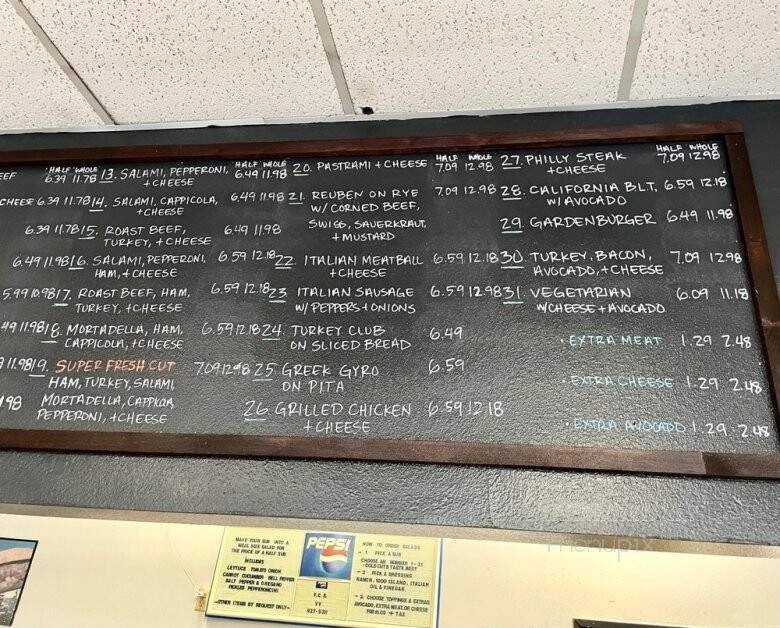 EEF
HALF WHOLE
6.39 11.78
CHEESE 6.39 11.78
6.39 11.78
6.49 11.98
5.99 10.98
HALF WHOLE
13. SALAMI, PEPPERONI, 6.49 11.98
+ CHEESE
14. SALAMI, CAPPICOLA, 6.49 11.98
+ CHEESE
15. ROAST BEEF, 6.49 11.98
TURKEY, + CHEESE
16. SALAMI, PEPPERONI, 6.59 12.18
HAM, + CHEESE
17. ROAST BEEF, HAM, 6.59 12.18
TURKEY, + CHEESE
18. MORTADELLA, HAM, 6.59 12.18
CAPPICOLA, + CHEESE
19. SUPER FRESH CUT 7.09 12.98
HAM, TURKEY, SALAMI
MORTADELLA, CAPPICOLA,
PEPPERONI, + CHEESE
HALF WHOLE
20. PASTRAMI + CHEESE 7.09 12.98
21. REUBEN ON RYE 7.09 12.98
W/ CORNED BEEF,
SWISS, SAUERKRAUT,
+ MUSTARD
22. ITALIAN MEATBALL 6.59 12.18
+ CHEESE
23. ITALIAN SAUSAGE 6.59 12.98
W/ PEPPERS + ONIONS
24. TURKEY CLUB 6.49
ON SLICED BREAD
25. GREEK GYRO 6.59
ON PITA
26. GRILLED CHICKEN 6.59 12.18
+ CHEESE
HALF WHOLE
27. PHILLY STEAK 7.09 12.98
+ CHEESE
28. CALIFORNIA BLT, 6.59 12.18
W/ AVOCADO
29. GARDENBURGER 6.49 11.98
30. TURKEY, BACON, 7.09 12.98
AVOCADO, + CHEESE
31. VEGETARIAN 6.09 11.18
W/ CHEESE + AVOCADO
• EXTRA MEAT 1.29 2.48
• EXTRA CHEESE 1.29 2.48
• EXTRA AVOCADO 1.29 2.48
MAKE YOUR SUB INTO A
MEAL SIZE SALAD FOR
THE PRICE OF A HALF SUB
INCLUDES
LETTUCE TOMATO ONION
CARROT CUCUMBER BELL PEPPER
SALT PEPPER & OREGANO
PICKLES PEPPERONCINI
-OTHER ITEMS BY REQUEST ONLY-
PEPSI
HOW TO ORDER SALADS
- 1. PICK A SUB
CHOOSE AN NUMBER 1-31
COLD CUTS TASTE BEST
- 2. PICK A DRESSING
RANCH, 1000 ISLAND, ITALIAN
OIL & VINEGAR
- 3. CHOOSE TOPPINGS & EXTRAS
AVOCADO, EXTRA MEAT OR CHEESE